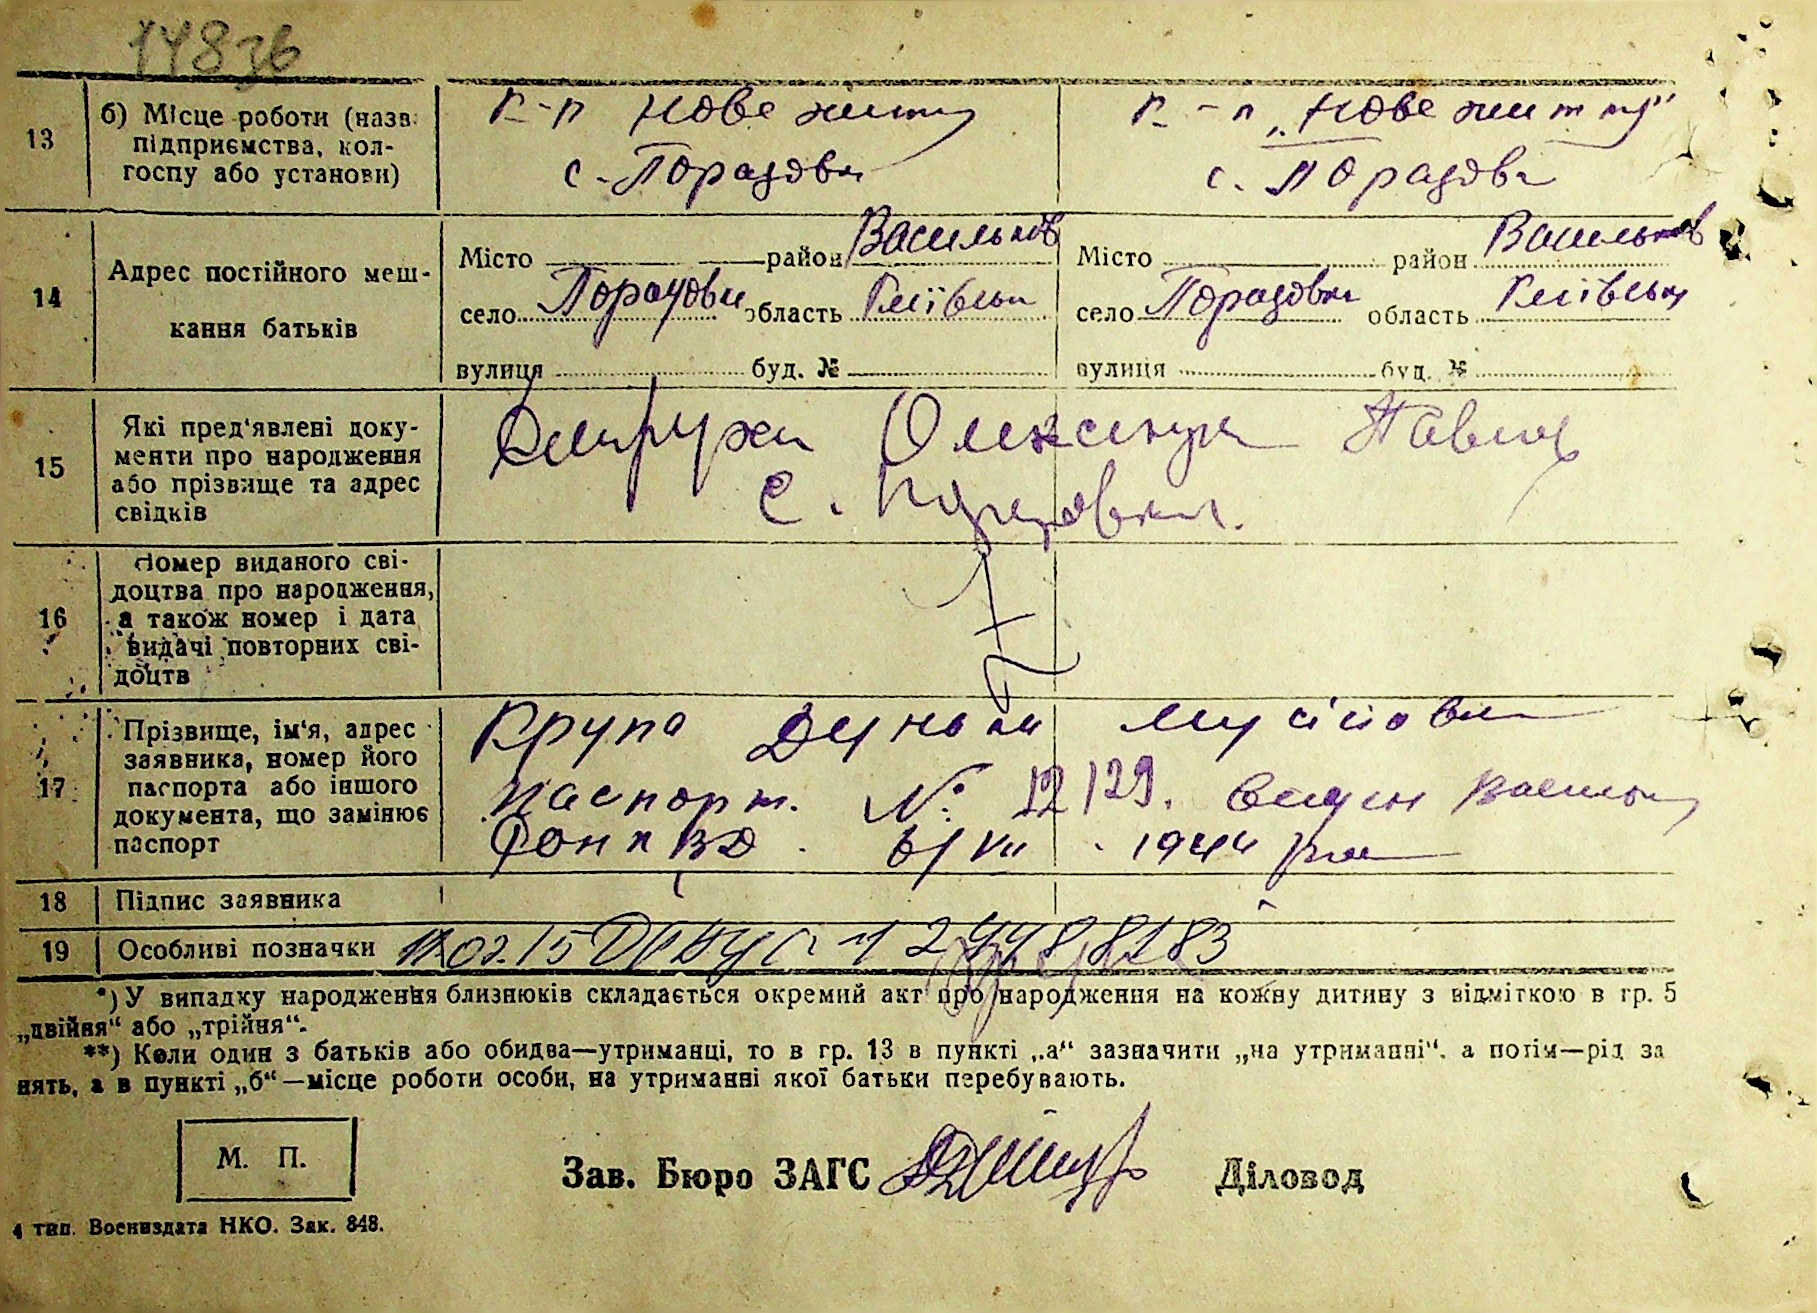 14836
13 б) Місце роботи (назв. підприємства, колгоспу або установи)
к-п Нове життя
с. Порадовка
к-п „Нове життя“
с. Порадовка
14 Адрес постійного мешкання батьків
Місто район Васильков
село Порадовка область Київськ
вулиця буд. №
Місто район Васильков
село Порадовка область Київськ
вулиця буд. №
15 Які пред'явлені документи про народження або прізвище та адрес свідків
Олександра Павл
с. Порадовка.
16 Номер виданого свідоцтва про народження, а також номер і дата видачі повторних свідоцтв
17 Прізвище, ім'я, адрес заявника, номер його паспорта або іншого документа, що замінює паспорт
Крупа Дунька Мусіївна
паспорт. №: 12129. видан Васильк
1944 рок
18 Підпис заявника
19 Особливі позначки
*) У випадку народження близнюків складається окремий акт про народження на кожну дитину з відміткою в гр. 5
„двійня“ або „трійня“.
**) Коли один з батьків або обидва—утриманці, то в гр. 13 в пункті „а“ зазначити „на утриманні“, а потім—рід за
нять, а в пункті „б“—місце роботи особи, на утриманні якої батьки перебувають.
М. П.
Зав. Бюро ЗАГС Діловод
4 тип. Воениздата НКО. Зак. 848.